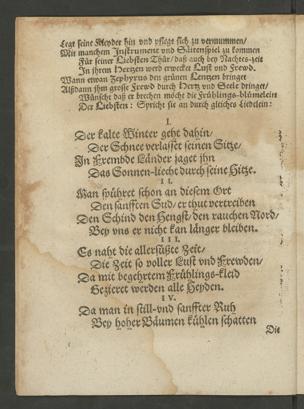 Legt seine Kleyder hin vnd pflegt sich zu vermummen/
Mit manchem Instrument vnd Säitenspiel zu kommen
Für seiner Liebsten Thür/ daß auch bey Nachtes-zeit
In jhrem Hertzen werd erwecket Lust vnd Frewd.
Wann etwan Zephyrus den grünen Lentzen bringet
Alßdann jhm grosse Frewd durch Hertz vnd Seele dringet/
Wünscht daß er brechen möcht die Frühlings-blümelein
Der Liebsten: Spricht sie an durch gleiches Liedlein:
I.
Der kalte Winter geht dahin/
Der Schnee verlasset seinen Sitze/
In Frembde Länder jaget jhn
Das Sonnen-liecht durch seine Hitze.
II.
Man spühret schon an diesem Ort
Den sanfften Sud/ er thut vertreiben
Den Schind den Hengst/ den rauchen Nord/
Bey vns er nicht kan länger bleiben.
III.
Es naht die allersüßte Zeit/
Die Zeit so voller Lust vnd Frewden/
Da mit begehrtem Frühlings-kleid
Gezieret werden alle Heyden.
IV.
Da man in still-vnd sanffter Ruh
Bey hoher Bäumen kühlen schatten
Die